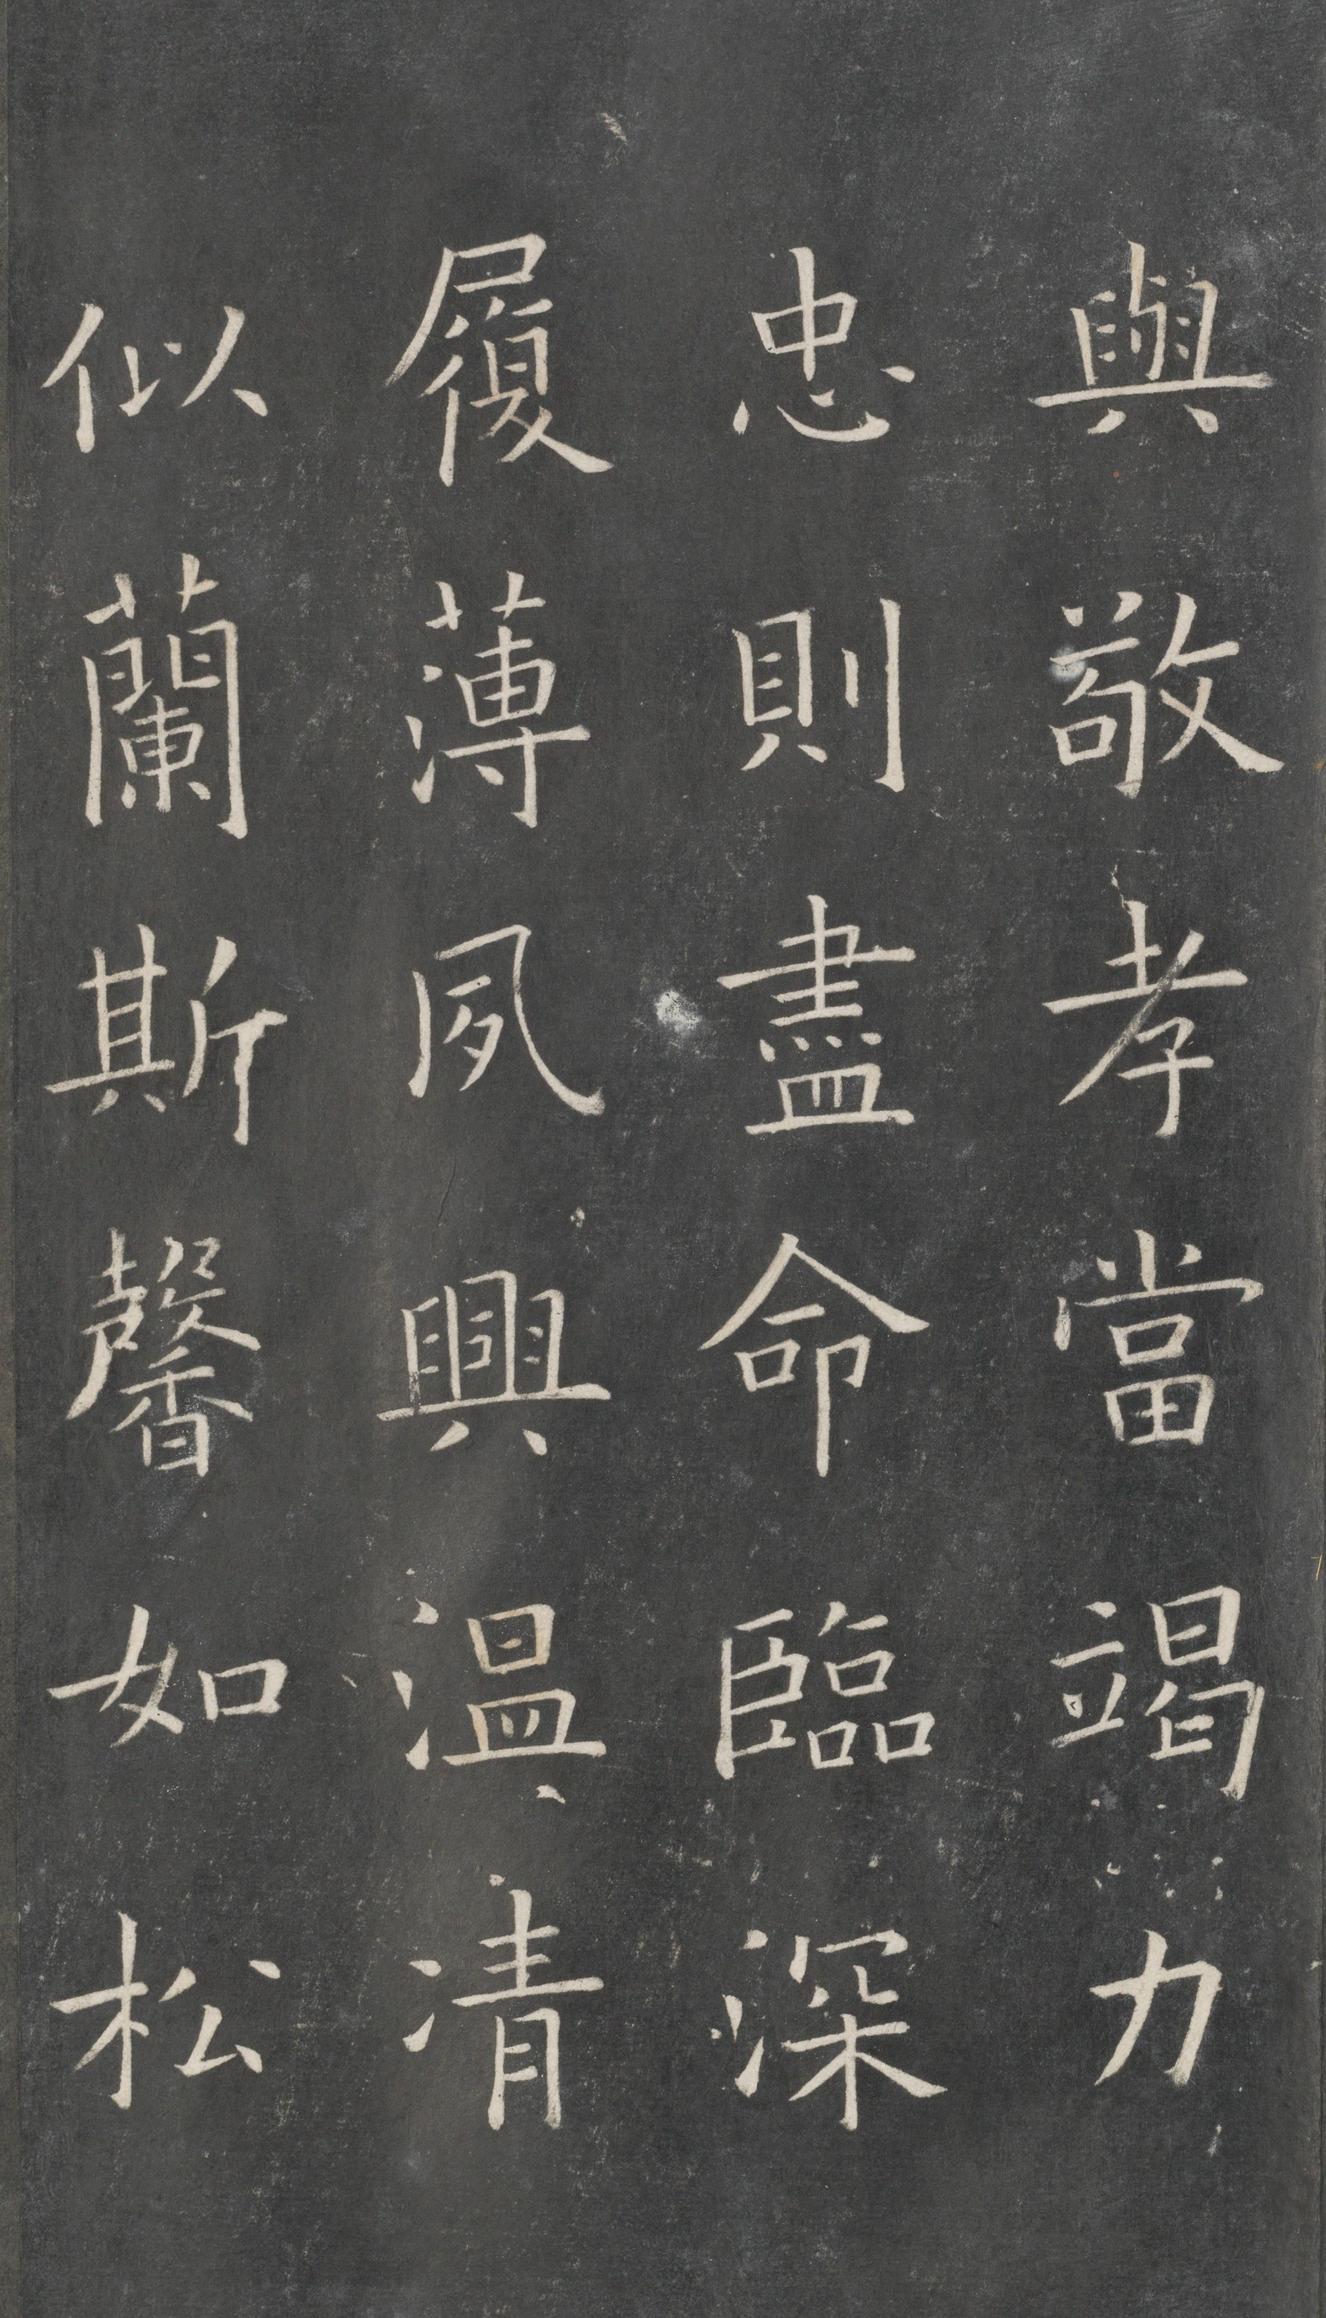 與敬孝當竭力
忠則盡命臨深
履薄夙興溫凊
似蘭斯馨如松